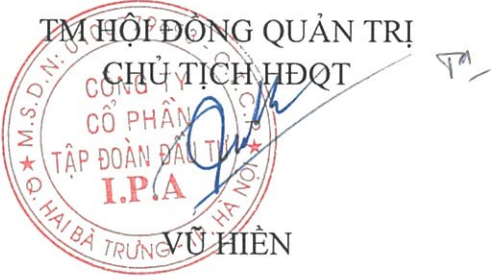 TM HỘI ĐỒNG QUẢN TRỊ
CHỦ TỊCH HĐQT
CÔNG TY
CỔ PHẦN
TẬP ĐOÀN ĐẦU TƯ
I.P.A
Q. HAI BÀ TRƯNG - TP. HÀ NỘI
VŨ HIỀN